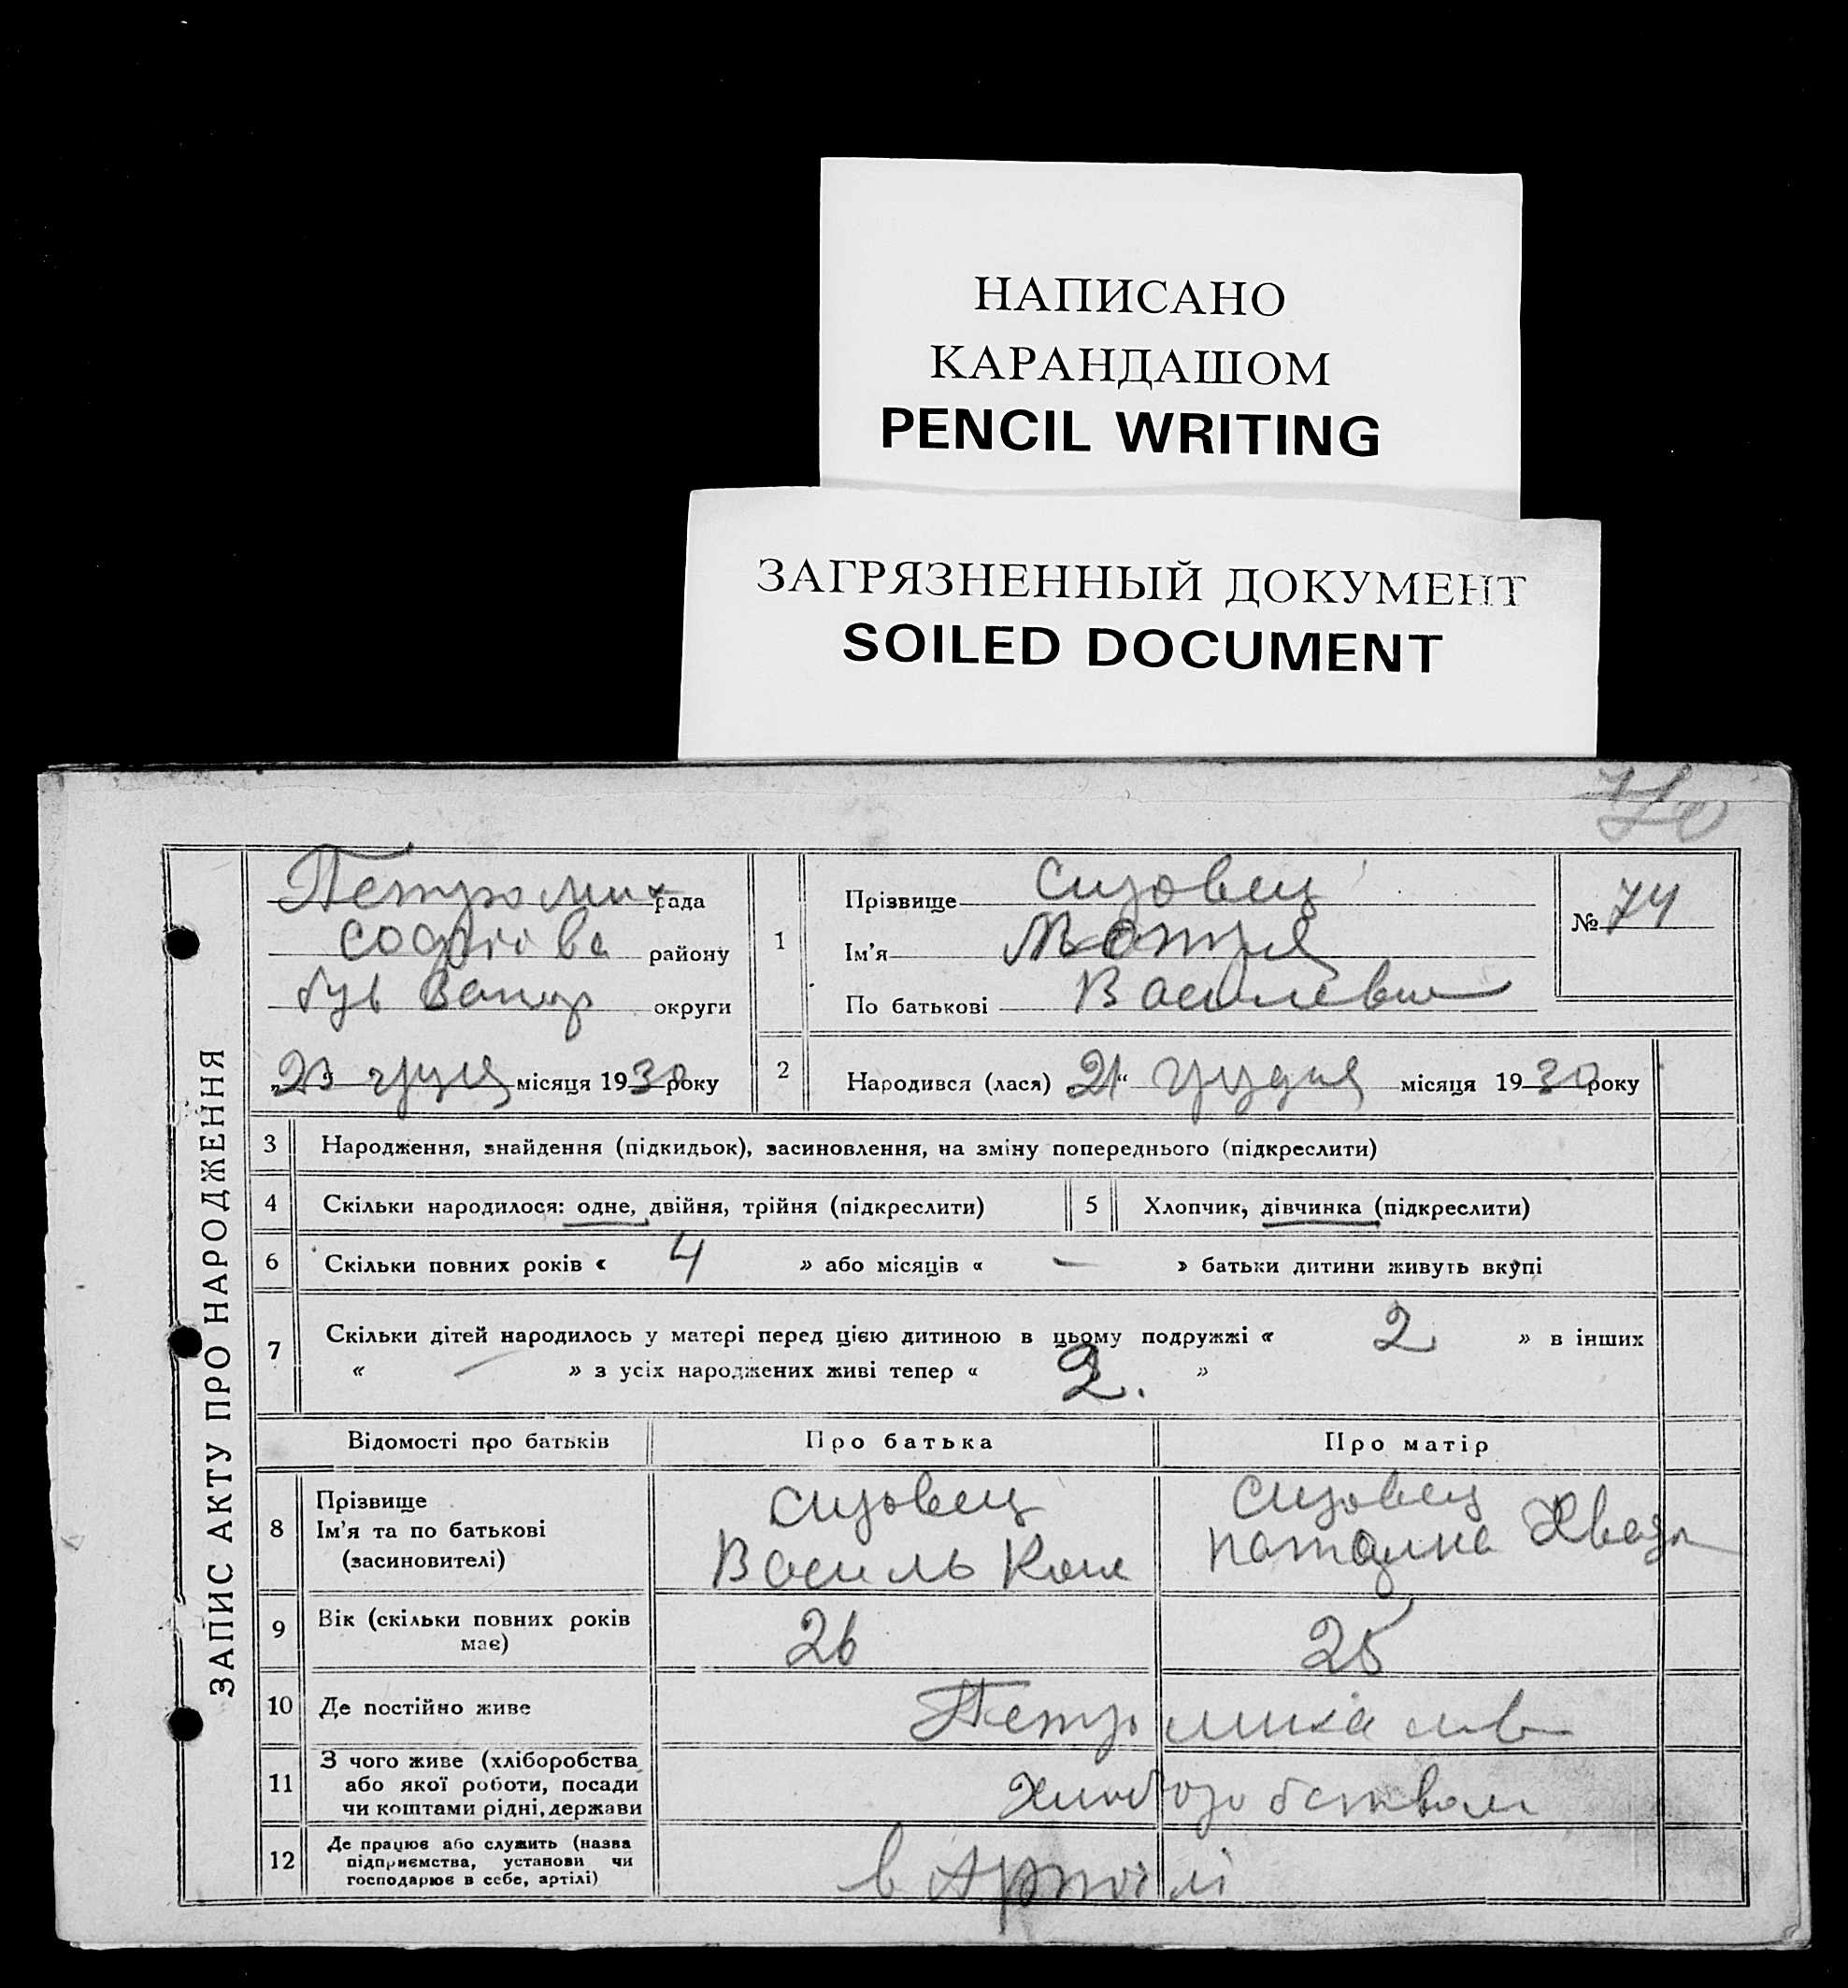 НАПИСАНО
КАРАНДАШОМ
PENCIL WRITING
ЗАГРЯЗНЕННЫЙ ДОКУМЕНТ
SOILED DOCUMENT
70
ЗАПИС АКТУ ПРО НАРОДЖЕННЯ
Петроми рада
Софіїв району
був Запор округи
23 грудня місяця 1930 року
1
Прізвище Сизовец
Ім'я Мотря
По батькові Василевна
№ 74
2 Народився (лася) „21“ грудня місяця 1930 року
3 Народження, знайдення (підкидьок), засиновлення, на зміну попереднього (підкреслити)
4 Скільки народилося: одне, двійня, трійня (підкреслити)
5 Хлопчик, дівчинка (підкреслити)
6 Скільки повних років « 4 » або місяців « — » батьки дитини живуть вкупі
7 Скільки дітей народилось у матері перед цією дитиною в цьому подружжі « 2 » в інших
« — » з усіх народжених живі тепер « 2. »
Відомості про батьків Про батька Про матір
8 Прізвище
Ім'я та по батькові
(засиновителі)
Сизовец
Василь
Сизовец
Наталка
9 Вік (скільки повних років
має)
26 25
10 Де постійно живе Петромихалів
11 З чого живе (хліборобства
або якої роботи, посади
чи коштами рідні, держави
Хліборобством
12 Де працює або служить (назва
підприємства, установи чи
господарює в себе, артілі)
в Артілі